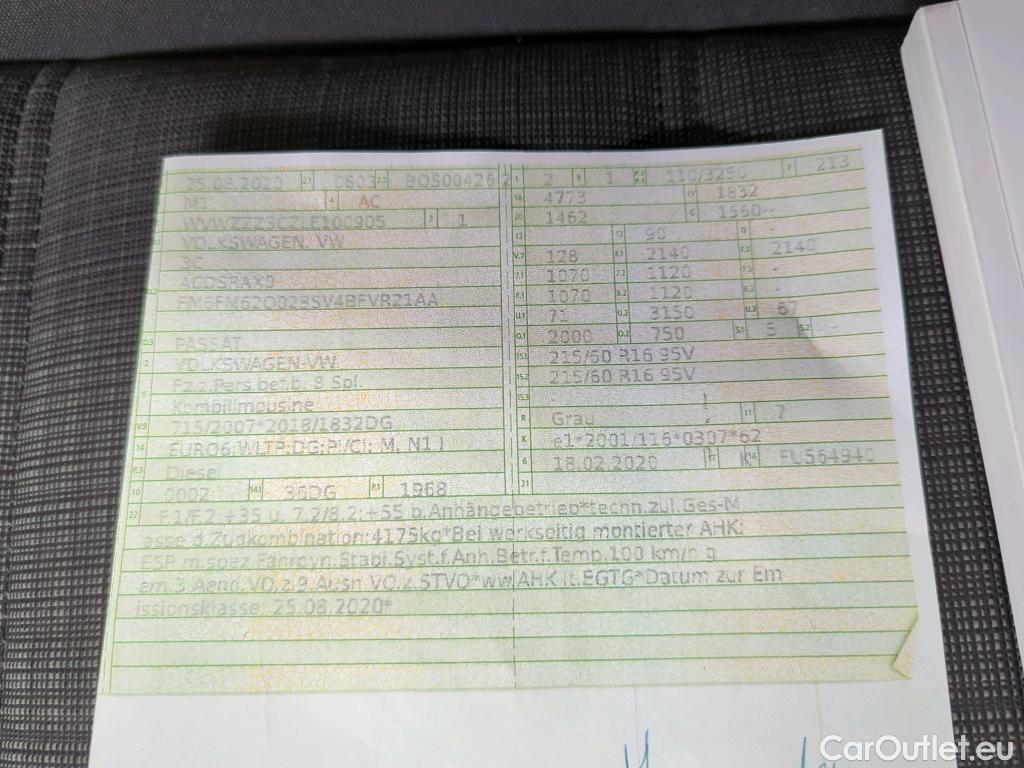 25.08.2020 21 0603 22 BOS00426 2 L 2 9 1 P.2 P.4 110/3250 T 213
M1 4 AC 18 4773 19 1832
WVWZZZ3CZLE100905 3 1 20 1462 G 1560--
VOLKSWAGEN, VW 12 - 13 90 Q -
3C V.7 128 F.1 2140 F.2 2140
ACDSRAX3 7.1 1070 7.2 1120 7.3 -
8.1 1070 8.2 1120 8.3 -
U.1 71 U.2 3150 U.3 67
D.3 PASSAT O.1 2000 O.2 750 S.1 5 S.2 -
2 VOLKSWAGEN-VW 15.1 215/60 R16 95V
5 Fz.z.Pers.bef.b. 8 Spl. 15.2 215/60 R16 95V
Kombilimousine 15.3 -
V.9 715/2007*2018/1832DG R Grau 11 7
14 EURO6;WLTP;DG;PI/CI; M, N1 I K e1*2001/116*0307*62
P.3 Diesel 6 18.02.2020 17 K 16 FU564940
10 0002 14.1 36DG P.1 1968 21
22 F.1/F.2 +35 u. 7.2/8.2:+55 b.Anhängebetrieb*techn.zul.Ges-M
asse d.Zugkombination:4175kg*Bei werkseitig montierter AHK:
ESP m.spez.Fahrdyn.Stabi.Syst.f.Anh.Betr.f.Temp.100 km/h g
em.3.Aend.VO.z.9.Ausn.VO.z.STVO*ww.AHK lt.EGTG*Datum zur Em
issionsklasse: 25.08.2020*
CarOutlet.eu